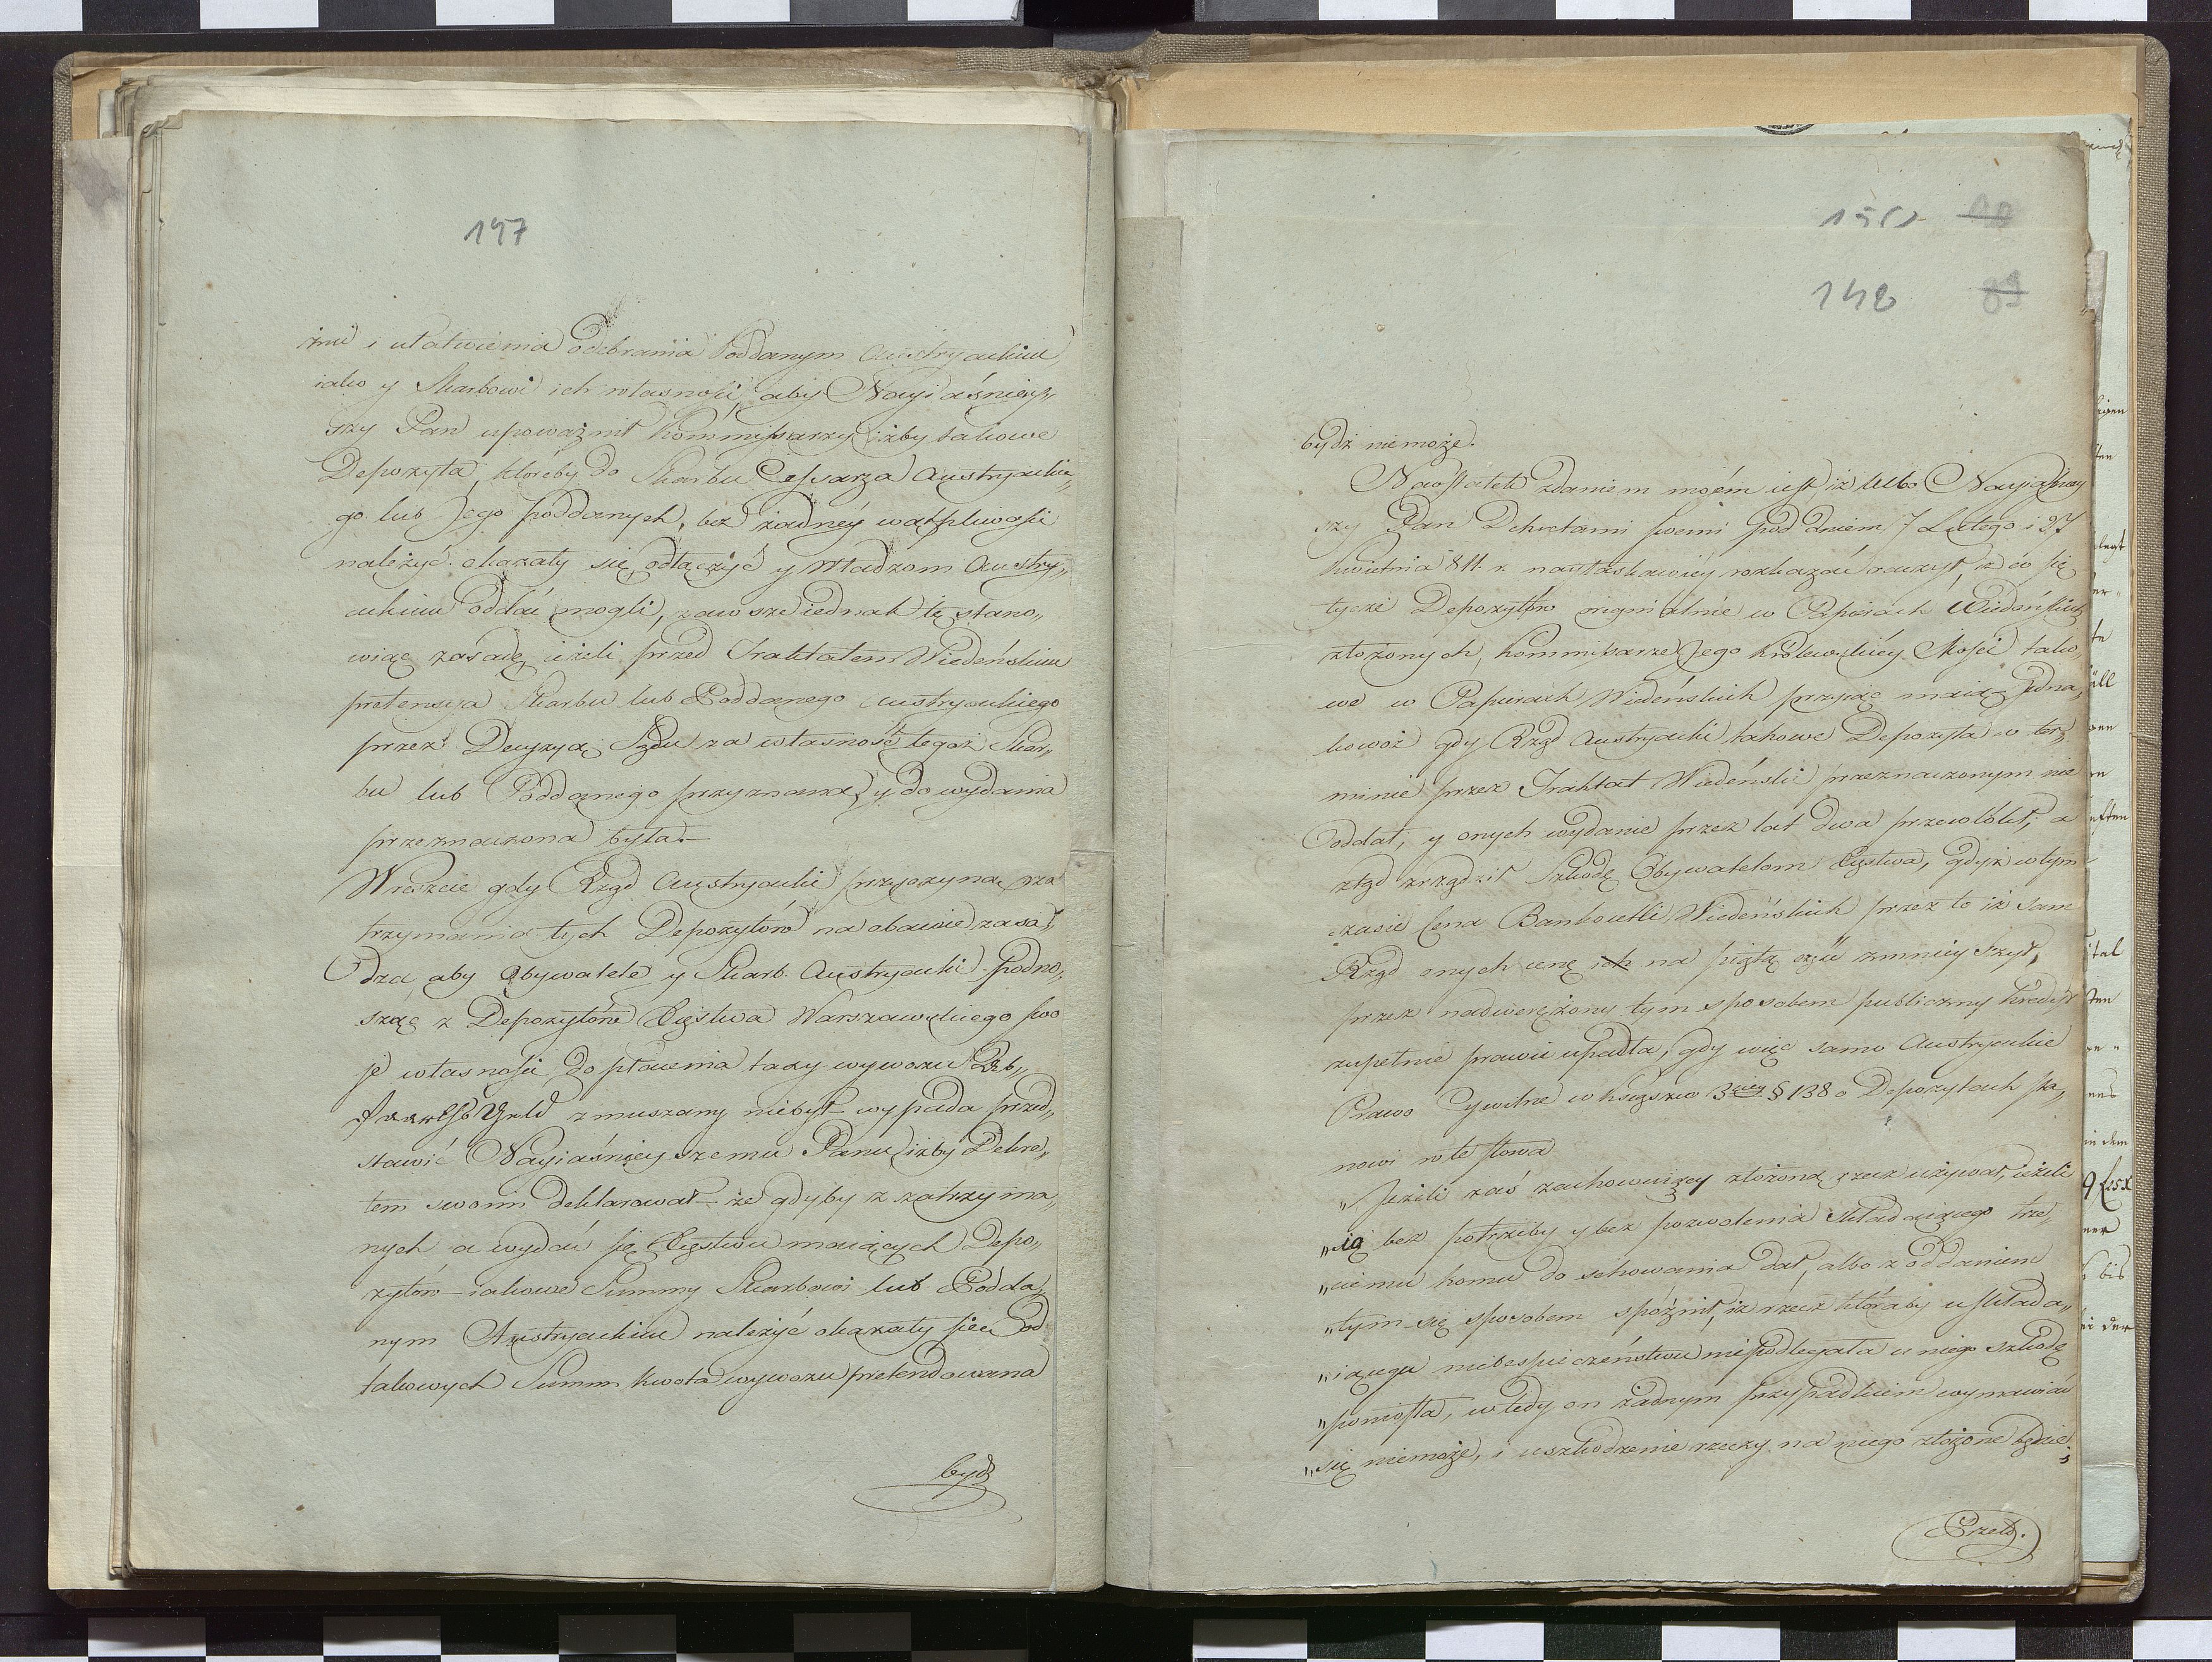 147
żmi i ułatwienia odebrania Poddanym Austryackim
iako y Skarbowi ich własności, aby Nayiaśniey„
szy Pan upoważnił Kommissarzy iżby takowe
Depozyta, któreby do Skarbu Cessarza Austryackie„
go lub Jego Poddanych, bez żadnéy wątpliwości
należyć okazały się, odłączyć y Władzom Austry„
ackim oddać mogli, zawsze iednak tę stano„
wiąc zasadę ieżeli przed Traktatem Wiedeńskim
pretensya Skarbu lub Poddanego Austryackiego
przez Decyzyą Sądu za własność tegoż Skar„
bu lub Poddanego przyznana, y do wydania
przeznaczona była.—
Wreszcie gdy Rząd Austryacki przyczynę za
trzymania tych Depozytów na obawie zasa„
dza, aby Obywatele y Skarb Austryacki podno„
sząc z Depozytów Xięstwa Warszawskiego swo
je własności, do płacenia taxy wywozu
zmuszany niebył wypada przed„
stawić Nayiaśnieyszemu Panu, iżby Dekre„
tem swoim deklarował— że gdyby z zatrzyma„
nych a wydać się Xięstwu maiących Depo„
zytów— iakowe Summy Skarbowi lub Podda„
nym Austryackim należyć okazały się od
takowych Summ kwota wywozu pretendowana
bydź
150 90
148 89
bydź niemoże.
Naostatek zdaniem mojém iest, iż lubo Nayiaśniey
szy Pan Dekretami swemi pod dniem 7 Lutego i 27
Kwietnia 811. r. nayłaskawiéy rozkazać raczył, iż co się
tycze Depozytów oryginalnie w Papierach Wiedeńskich
złożonych, Kommissarze Jego Królewskiéy Mości tako„
we w Papierach Wiedeńskich przyiąć maią— Jedna„
kowoż gdy Rząd Austryacki takowe Depozyta w ter„
minie przez Traktat Wiedeński przeznaczonym nie
oddał, y onych wydanie przez lat dwa przewlókł, a
ztąd zrządził Szkodę Obywatelom Xięstwa, gdyż w tym
czasie Cena Bankocetli Wiedeńskich przez to iż sam
Rząd onych cenę ich na piątą część zmnieyszył,
przez nadwerężony tym sposobem publiczny kredyt
zupełnie prawie upadła, gdy więc samo Austryackie
Prawo Cywilne w księdze 3ciey § 138 o Depozytach sta„
nowi w te słowa
„Jeżeli zaś zachowuiący złożoną rzecz używał, ieżeli
„ią bez potrzeby y bez pozwolenia składaiącego trze„
„ciemu komu do schowania dał, albo z oddaniem
„tym się sposobem spóźnił, iż rzecz któraby u składa„
„iącego niebespieczeństwu niepodlegała u niego szkodę
„poniosła, wtedy on żadnym przypadkiem wymawiać
„się niemoże, i uszkodzenie rzeczy na niego złożone będzie„
Przeto.